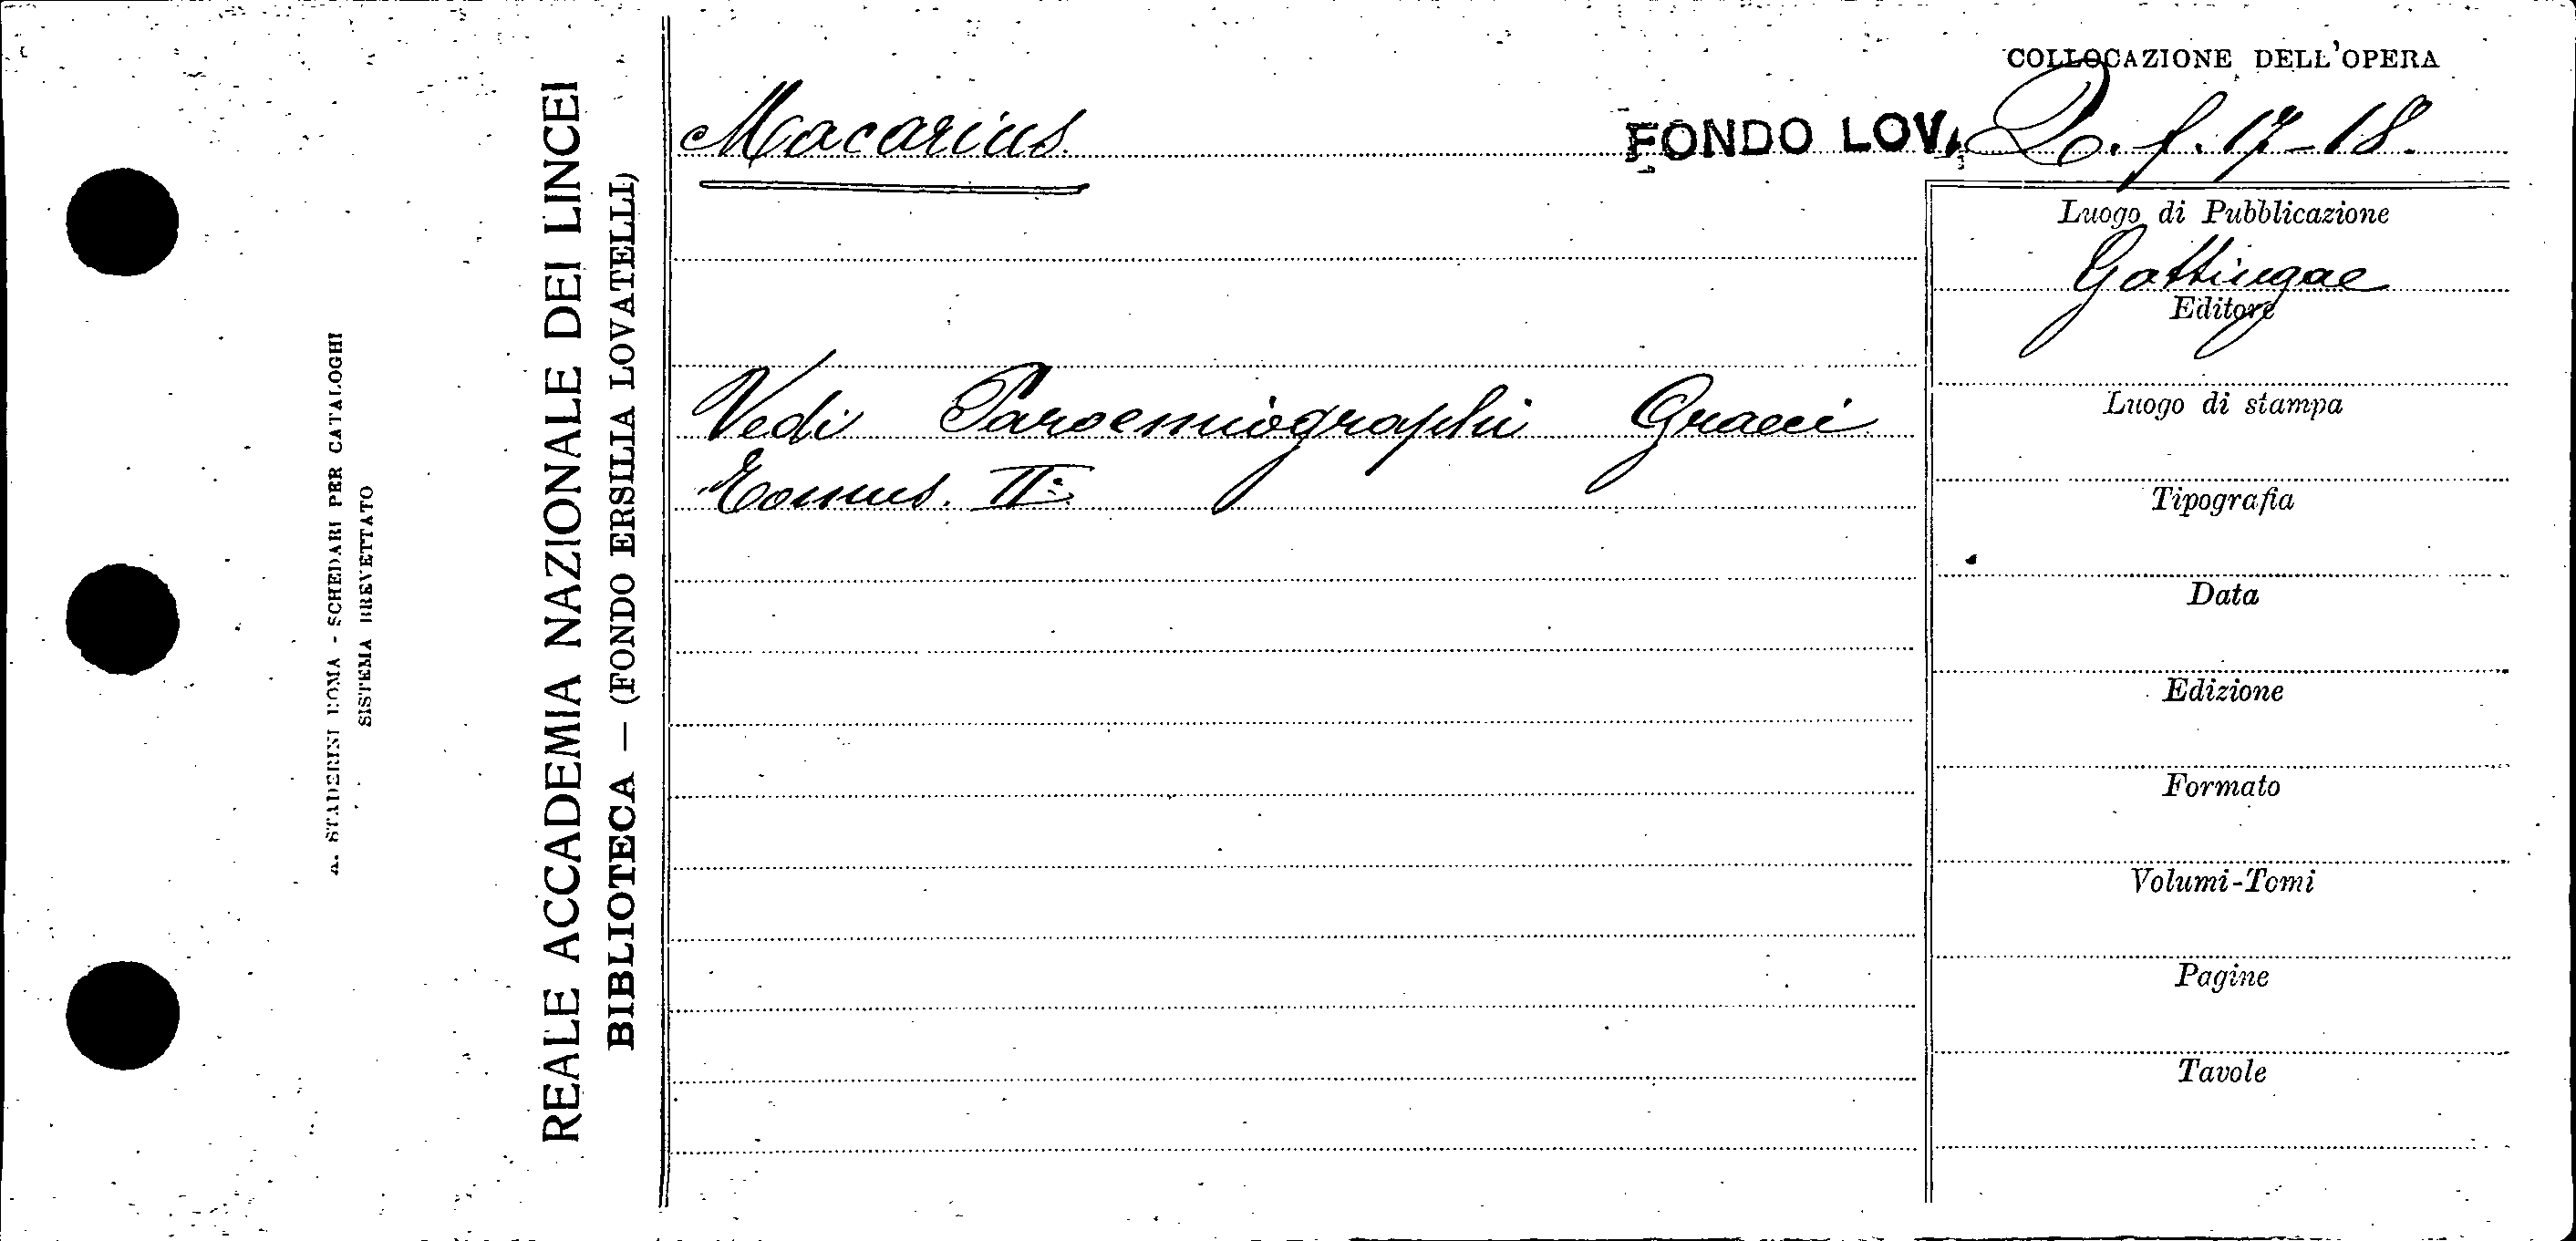 COLLOCAZIONE DELL'OPERA
Macarius
FONDO LOV. Q. f. 17-18.
Luogo di Pubblicazione
Gottingae
Editore
Vedi Paroemiographi Graeci
Tomus. II:
Luogo di stampa
Tipografia
Data
Edizione
Formato
Volumi-Tomi
Pagine
Tavole
REALE ACCADEMIA NAZIONALE DEI LINCEI
BIBLIOTECA — (FONDO ERSILIA LOVATELLI)
A. STADERINI ROMA - SCHEDARI PER CATALOGHI
SISTEMA BREVETTATO